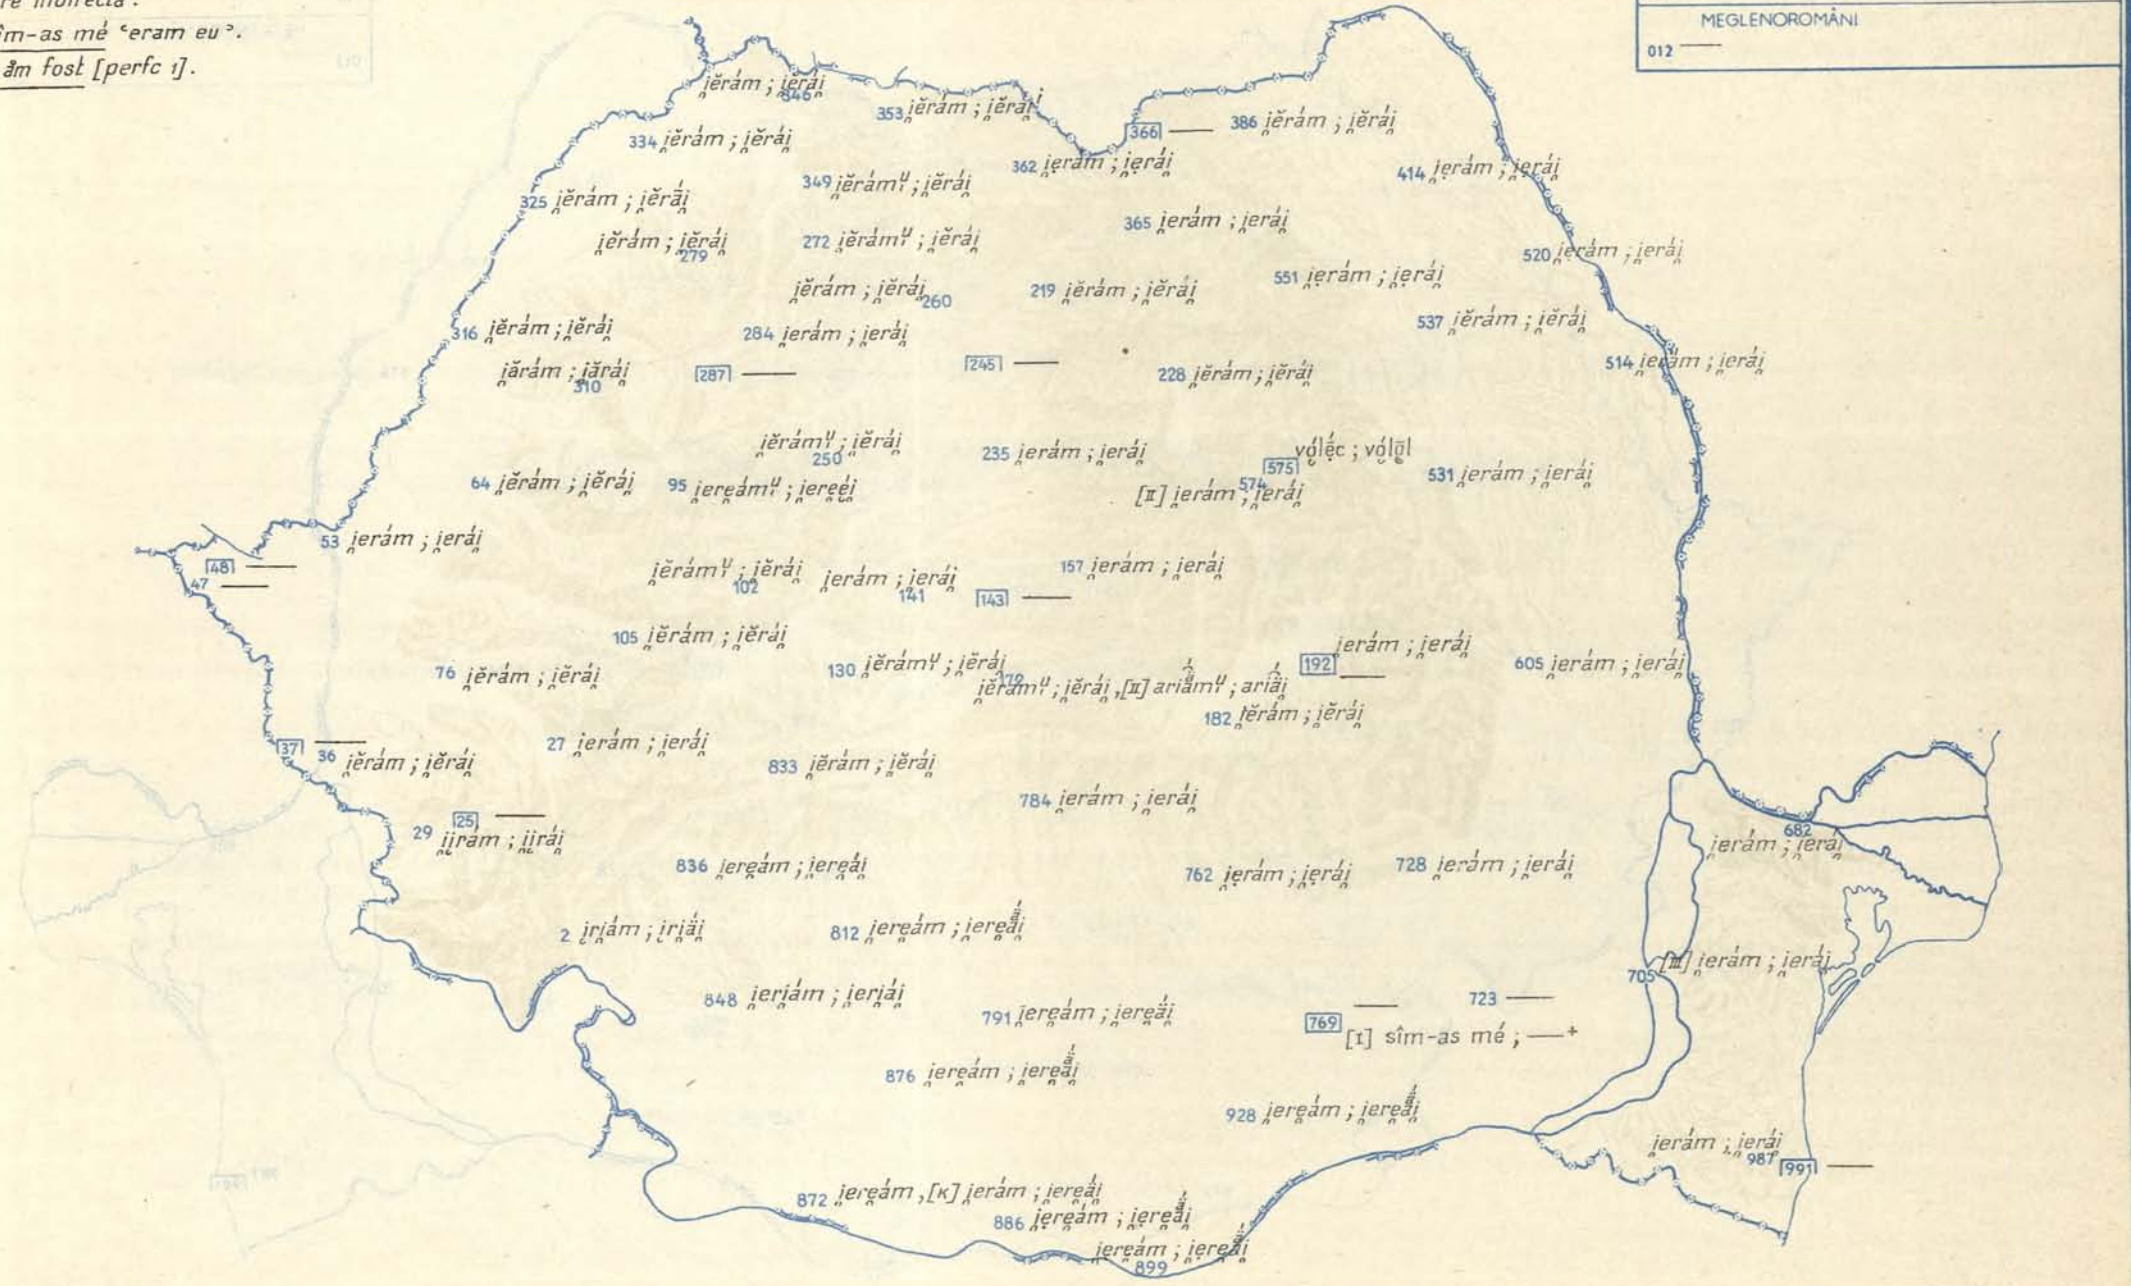 re indirectă.
sîm-as mé ‘eram eu’.
åm fost [perfc 1].
MEGLENOROMÂNI
012 ——
i̯ĕrám ; i̯ĕrái̯
846
353 i̯ĕrám ; i̯ĕrái̯
334 i̯ĕrám ; i̯ĕrái̯
366 ——
386 i̯ĕrám ; i̯ĕrái̯
362 i̯ẹrám ; i̯ẹrái̯
414 i̯ẹrám ; i̯ẹrái̯
349 i̯ĕrámᵘ̯ ; i̯ĕrái̯
325 i̯ĕrám ; i̯ĕrā́i̯
365 i̯erám ; i̯erái̯
i̯ĕrám ; i̯ĕrái̯
279
272 i̯ĕrámᵘ̯ ; i̯ĕrái̯
520 i̯erám ; i̯erái̯
551 i̯ẹrám ; i̯ẹrái̯
i̯ĕrám ; i̯ĕrái̯
260
219 i̯ĕrám ; i̯ĕrái̯
316 i̯ĕrám ; i̯ĕrái̯
284 i̯erám ; i̯erái̯
537 i̯ĕrám ; i̯ĕrái̯
514 i̯erám ; i̯erái̯
i̯ărám ; i̯ărái̯
310
287 ——
245 ——
228 i̯ĕrám ; i̯ĕrái̯
i̯ĕrámᵘ̯ ; i̯ĕrái̯
250
235 i̯erám ; i̯erái̯
575 vó̜lẹ́c ; vó̜lō̜l
531 i̯erám ; i̯erái̯
64 i̯ĕrám ; i̯ĕrái̯
95 i̯ere̯ámᵘ̯ ; i̯ere̯éi̯
574
[II] i̯erám ; i̯erái̯
53 i̯erám ; i̯erái̯
48 ——
47 ——
i̯ĕrámᵘ̯ ; i̯ĕrái̯
102
i̯erám ; i̯erái̯
141
143 ——
157 i̯erám ; i̯erái̯
105 i̯ĕrám ; i̯ĕrái̯
i̯erám ; i̯erái̯
192 ——
605 i̯erám ; i̯erái̯
76 i̯ĕrám ; i̯ĕrái̯
130 i̯ĕrámᵘ̯ ; i̯ĕrái̯
172
i̯ĕrámᵘ̯ ; i̯ĕrái̯ , [II] ariå̂́mᵘ̯ ; ariå̂́i̯
182 i̯ĕrám ; i̯ĕrái̯
37 ——
36 i̯ĕrám ; i̯ĕrái̯
27 i̯erám ; i̯erái̯
833 i̯ĕrám ; i̯ĕrái̯
784 i̯erám ; i̯erái̯
25 ——
29 i̯irám ; i̯irái̯
682
i̯erám ; i̯erái̯
836 i̯ere̯ám ; i̯ere̯ái̯
762 i̯ẹrám ; i̯ẹrái̯
728 i̯erám ; i̯erái̯
2 i̯ri̯ám ; i̯ri̯ä́i̯
812 i̯ere̯ám ; i̯ere̯ä́i̯
705 [III] i̯erám ; i̯erái̯
848 i̯eri̯ám ; i̯eri̯ái̯
791 i̯ere̯ám ; i̯ere̯ä́i̯
723 ——
769 ——
[I] sîm-as mé ; ——+
876 i̯ere̯ám ; i̯ere̯ä́i̯
928 i̯ere̯ám ; i̯ere̯ä́i̯
i̯erám ; i̯erái̯
987
991 ——
872 i̯ere̯ám , [K] i̯erám ; i̯ere̯ái̯
886 i̯ẹre̯ám ; i̯ẹre̯ä́i̯
i̯ẹre̯ám ; i̯ẹre̯ä́i̯
899